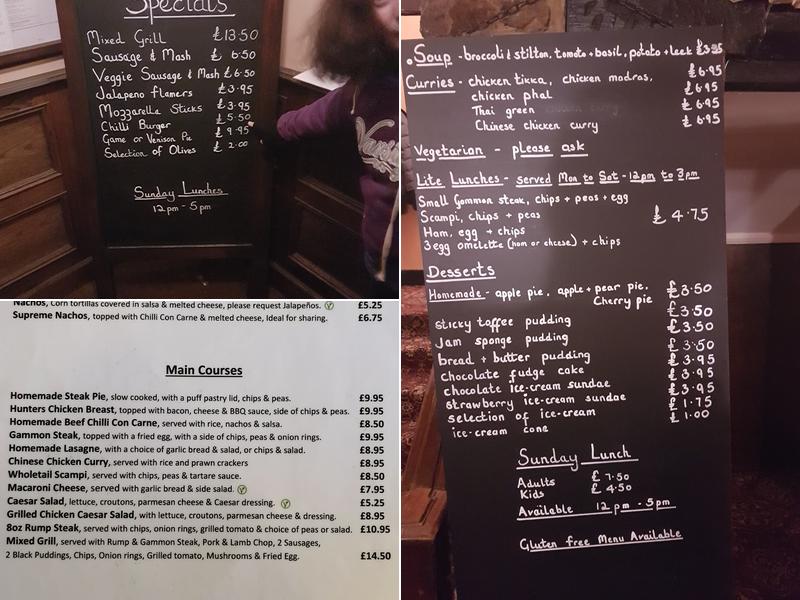 Specials
Mixed Grill £13.50
Sausage & Mash £6.50
Veggie Sausage & Mash £6.50
Jalapeno flamers £3.95
Mozzarella Sticks £3.95
Chilli Burger £5.50
Game or Venison Pie £9.95
Selection of Olives £2.00
Sunday Lunches
12pm - 5pm
Nachos, Corn tortillas covered in salsa & melted cheese, please request Jalapeños. £5.25
Supreme Nachos, topped with Chilli Con Carne & melted cheese, Ideal for sharing. £6.75
Main Courses
Homemade Steak Pie, slow cooked, with a puff pastry lid, chips & peas. £9.95
Hunters Chicken Breast, topped with bacon, cheese & BBQ sauce, side of chips & peas. £9.95
Homemade Beef Chilli Con Carne, served with rice, nachos & salsa. £8.50
Gammon Steak, topped with a fried egg, with a side of chips, peas & onion rings. £9.95
Homemade Lasagne, with a choice of garlic bread & salad, or chips & salad. £8.95
Chinese Chicken Curry, served with rice and prawn crackers £8.95
Wholetail Scampi, served with chips, peas & tartare sauce. £8.50
Macaroni Cheese, served with garlic bread & side salad. £7.95
Caesar Salad, lettuce, croutons, parmesan cheese & Caesar dressing. £5.25
Grilled Chicken Caesar Salad, with lettuce, croutons, parmesan cheese & dressing. £8.95
8oz Rump Steak, served with chips, onion rings, grilled tomato & choice of peas or salad. £10.95
Mixed Grill, served with Rump & Gammon Steak, Pork & Lamb Chop, 2 Sausages,
2 Black Puddings, Chips, Onion rings, Grilled tomato, Mushrooms & Fried Egg. £14.50
Soup - broccoli & stilton, tomato + basil, potato + leek £3.95
Curries - chicken tikka, chicken madras, £6.95
chicken phal £6.95
Thai green £6.95
Chinese chicken curry £6.95
Vegetarian - please ask
Lite Lunches - served Mon to Sat - 12pm to 3pm
Small Gammon steak, chips + peas + egg
Scampi, chips + peas £4.75
Ham, egg + chips
3 egg omelette (ham or cheese) + chips
Desserts
Homemade - apple pie, apple + pear pie, £3.50
Cherry pie
sticky toffee pudding £3.50
Jam sponge pudding £3.50
bread + butter pudding £3.50
chocolate fudge cake £3.95
chocolate ice-cream sundae £3.95
strawberry ice-cream sundae £3.95
selection of ice-cream £1.75
ice-cream cone £1.00
Sunday Lunch
Adults £7.50
Kids £4.50
Available 12pm - 5pm
Gluten free Menu Available